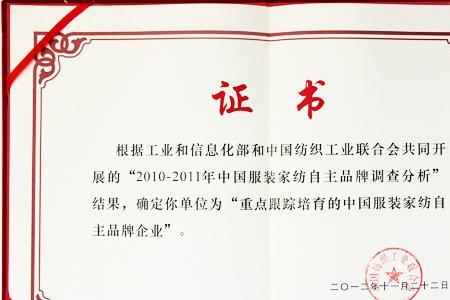 证书
根据工业和信息化部和中国纺织工业联合会共同开
展的“2010-2011年中国服装家纺自主品牌调查分析”
结果，确定你单位为“重点跟踪培育的中国服装家纺自
主品牌企业”。
国纺织工业联合会
二〇一二年十一月二十二日